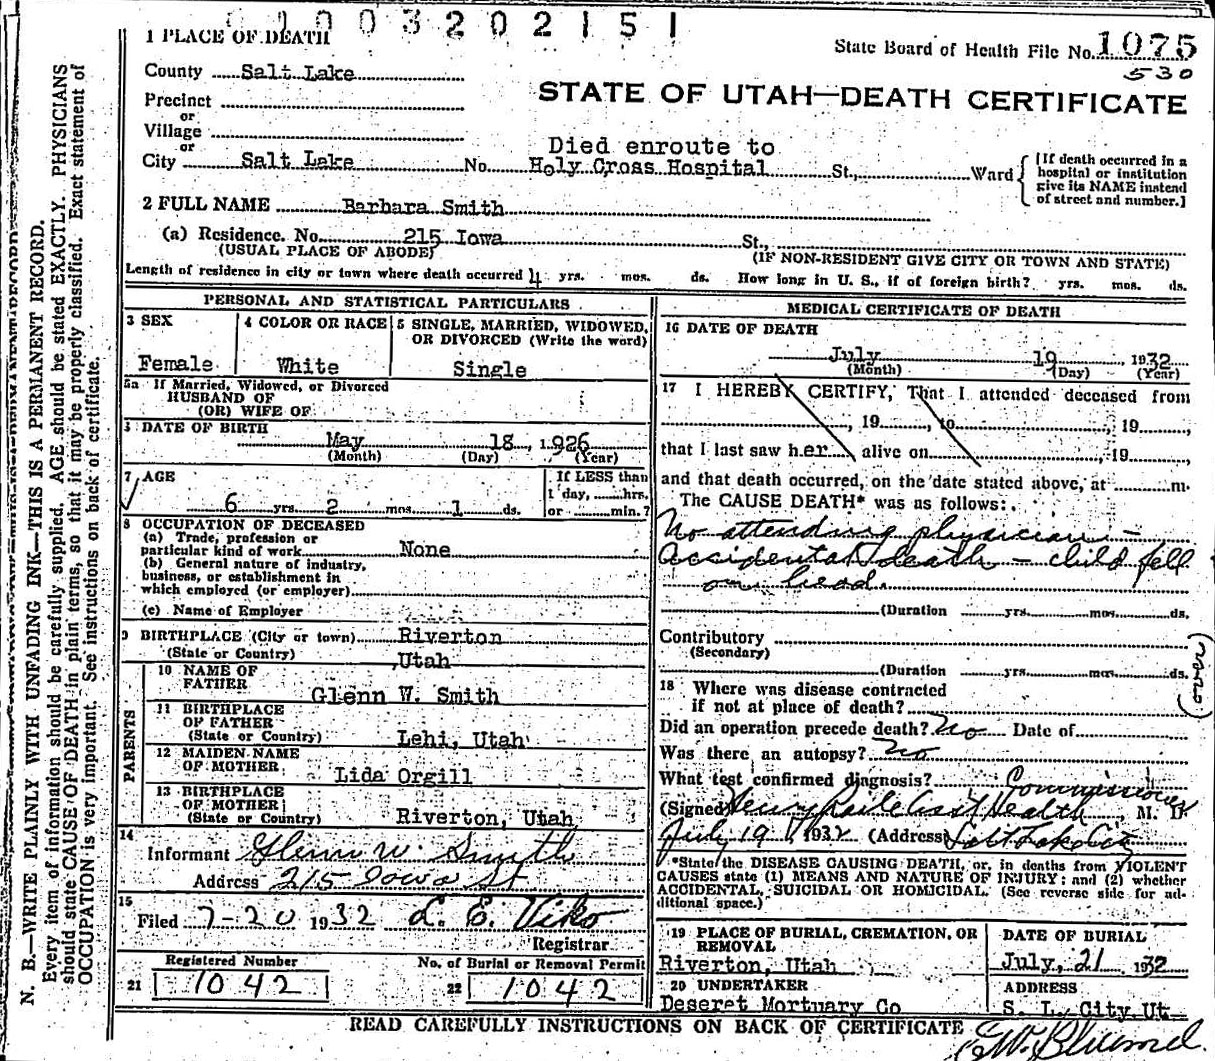 0 1 0 0 3 2 0 2 1 5 1
1 PLACE OF DEATH
State Board of Health File No. 1075
530
County Salt Lake
STATE OF UTAH—DEATH CERTIFICATE
Precinct
or
Village
or
Died enroute to
City Salt Lake No. Holy Cross Hospital St., Ward
[If death occurred in a
hospital or institution
give its NAME instead
of street and number.]
2 FULL NAME Barbara Smith
(a) Residence. No. 215 Iowa St.,
(USUAL PLACE OF ABODE) (IF NON-RESIDENT GIVE CITY OR TOWN AND STATE)
Length of residence in city or town where death occurred 4 yrs. mos. ds. How long in U. S., if of foreign birth? yrs. mos. ds.
PERSONAL AND STATISTICAL PARTICULARS
3 SEX
Female
4 COLOR OR RACE
White
5 SINGLE, MARRIED, WIDOWED,
OR DIVORCED (Write the word)
Single
5a If Married, Widowed, or Divorced
HUSBAND OF
(OR) WIFE OF
DATE OF BIRTH
May 18, 1926
(Month) (Day) (Year)
7 AGE
6 yrs. 2 mos. 1 ds.
If LESS than
1 day, hrs.
or min.?
8 OCCUPATION OF DECEASED
(a) Trade, profession or
particular kind of work None
(b) General nature of industry,
business, or establishment in
which employed (or employer)
(c) Name of Employer
9 BIRTHPLACE (City or town) Riverton
(State or Country) ,Utah
PARENTS
10 NAME OF
FATHER Glenn W. Smith
11 BIRTHPLACE
OF FATHER
(State or Country) Lehi, Utah
12 MAIDEN NAME
OF MOTHER Lida Orgill
13 BIRTHPLACE
OF MOTHER
(State or Country) Riverton, Utah
14
Informant Glenn W. Smith
Address 215 Iowa St
15
Filed 7-20 1932 L. E. Viko
Registrar
Registered Number No. of Burial or Removal Permit
21 1042 22 1042
MEDICAL CERTIFICATE OF DEATH
16 DATE OF DEATH
July 19 1932
(Month) (Day) (Year)
17 I HEREBY CERTIFY, That I attended deceased from
, 19 , to , 19 ,
that I last saw her alive on , 19
and that death occurred, on the date stated above, at m.
The CAUSE DEATH* was as follows:
No attending physician —
Accidental death — child fell
on head.
(Duration yrs. mos. ds.
Contributory
(Secondary)
(Duration yrs. mos. ds.
(over)
18 Where was disease contracted
if not at place of death?
Did an operation precede death? No Date of
Was there an autopsy? No
What test confirmed diagnosis?
Commissioner
(Signed) Health, M. D.
July 19 1932 (Address) Salt Lake City
*State the DISEASE CAUSING DEATH, or, in deaths from VIOLENT
CAUSES state (1) MEANS AND NATURE OF INJURY; and (2) whether
ACCIDENTAL, SUICIDAL OR HOMICIDAL. (See reverse side for ad-
ditional space.)
19 PLACE OF BURIAL, CREMATION, OR
REMOVAL
Riverton, Utah
DATE OF BURIAL
July, 21 1932
20 UNDERTAKER
Deseret Mortuary Co
ADDRESS
S. L. City Ut.
READ CAREFULLY INSTRUCTIONS ON BACK OF CERTIFICATE
N. B.—WRITE PLAINLY WITH UNFADING INK—THIS IS A PERMANENT RECORD.
Every item of information should be carefully supplied. AGE should be stated EXACTLY. PHYSICIANS
should state CAUSE OF DEATH in plain terms, so that it may be properly classified. Exact statement of
OCCUPATION is very important. See instructions on back of certificate.